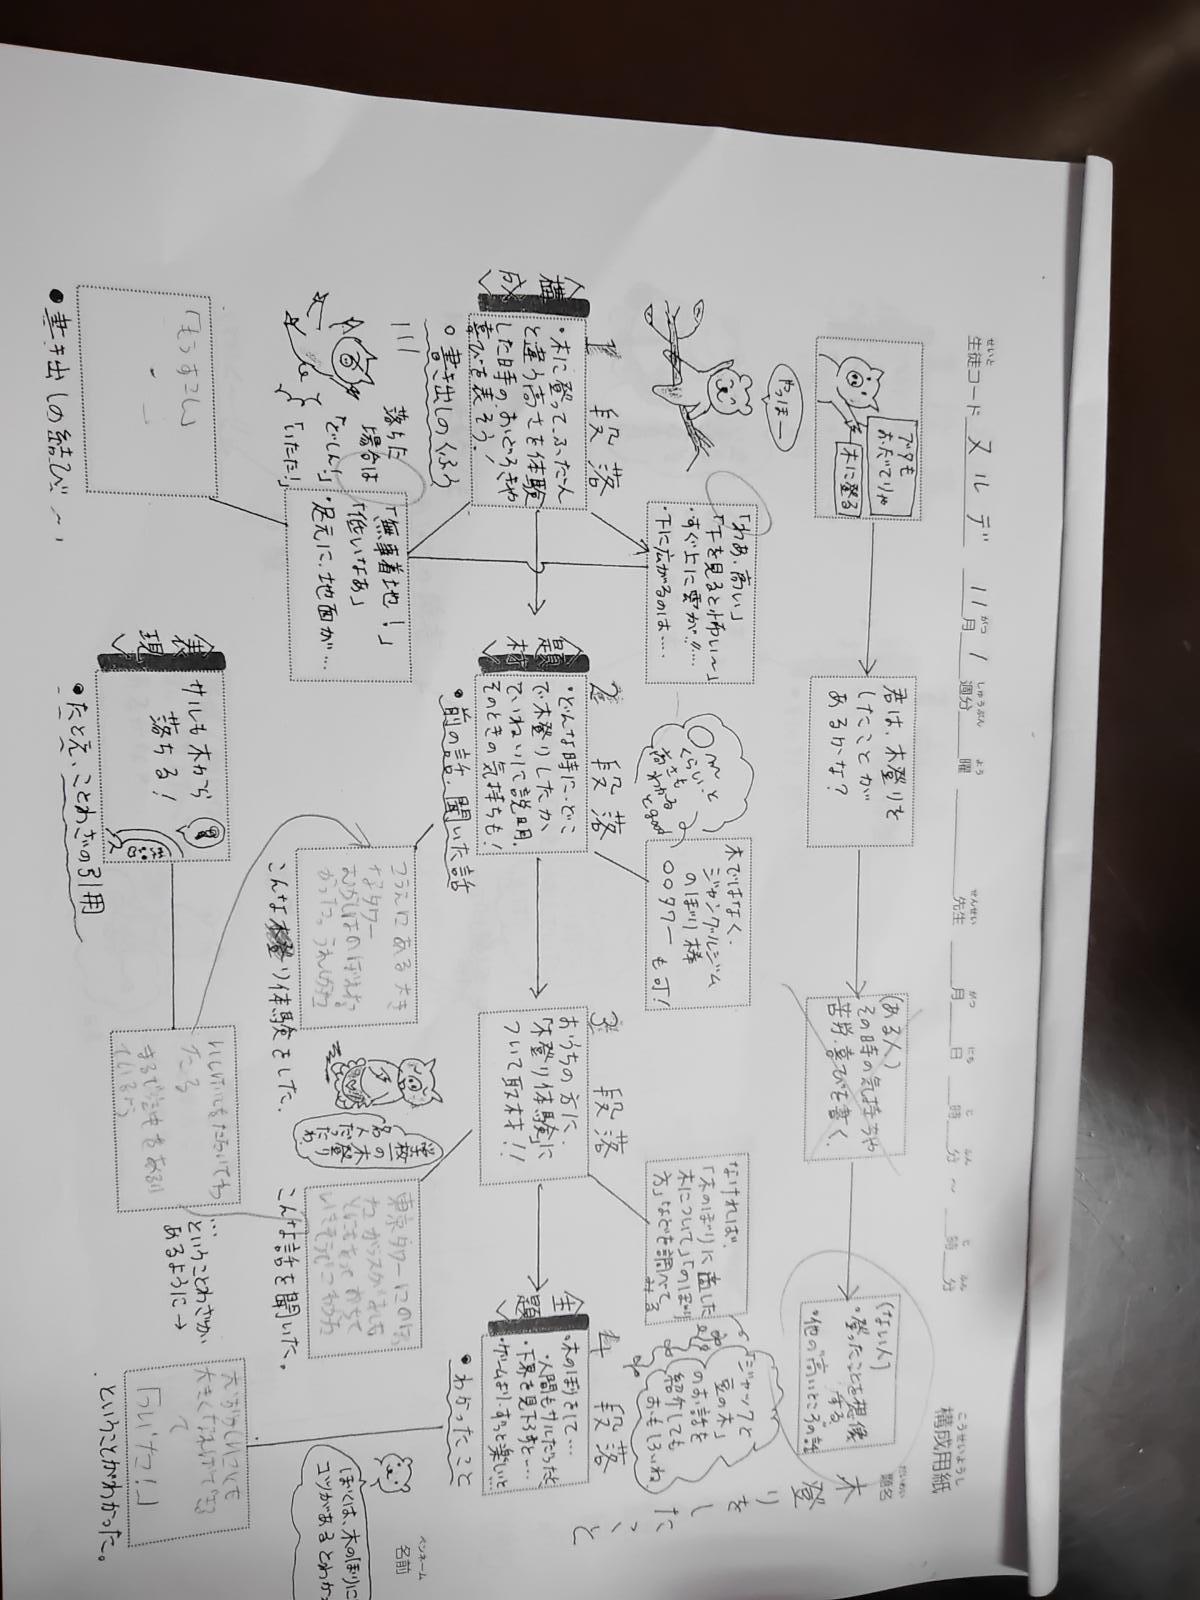 構成用紙
題名 木登りをしたこと
生徒コード ヌルデ 11月1週分 曜 先生 月 日 時 分 ~ 時 分
ペンネーム
名前
ブタも
おだてりゃ
木に登る
君は、木登りを
したことが
あるかな?
(ある人)
その時の気持ちや
苦労、喜びを書く。
(ない人)
・登ったことを想像
する
・他の“高いところ”の話
やっほー
「わあ、高い」
「下を見ると怖い~」
・すぐ上に雲が!!…
・下に広がるのは….
〇m
くらい、と
高さも
わかる
とgood
木ではなく、
ジャングルジム
のぼり棒
〇〇タワーも可!
なければ、
「木のぼりに適した
木について」「のぼり
方」などを調べて
みる
「ジャックと
豆の木」
のお話を
紹介しても
おもしろいね。
1段落
〈構成〉
・木に登って、ふだん
と違う高さを体験
した時の、おどろきや
喜びを表そう!
○書き出しの工夫
2段落
〈題材〉
・どんな時に、どこ
で木登りしたか
ていねいに説明。
そのときの気持ちも!
・前の話 聞いた話
3段落
おうちの方に、
「木登り体験」に
ついて取材!!
4段落
〈主題〉
・木のぼりをして…
・人間もサルだったと
・下界を見下ろすと…
・ゲームより、ずっと楽しいと
・わかったこと
落ちた
場合は
「どしん!」
「いたた!」
「無事着地!」
「低いなあ」
・足元に、地面が…
こうえんにある大き
なタワー
こんな木登り体験をした。
学校一の木登り
名人だったわ
東京タワーにのぼ
こんな話を聞いた。
「もうすこし」
●書き出しの結び~
〈表現〉
サルも木から
落ちる!
●たとえ、ことわざの引用
まるで空中をある
…ということわざが
あるように→
「ついた!」
ということがわかった。
ぼくは、木のぼりに
コツがあるとわか